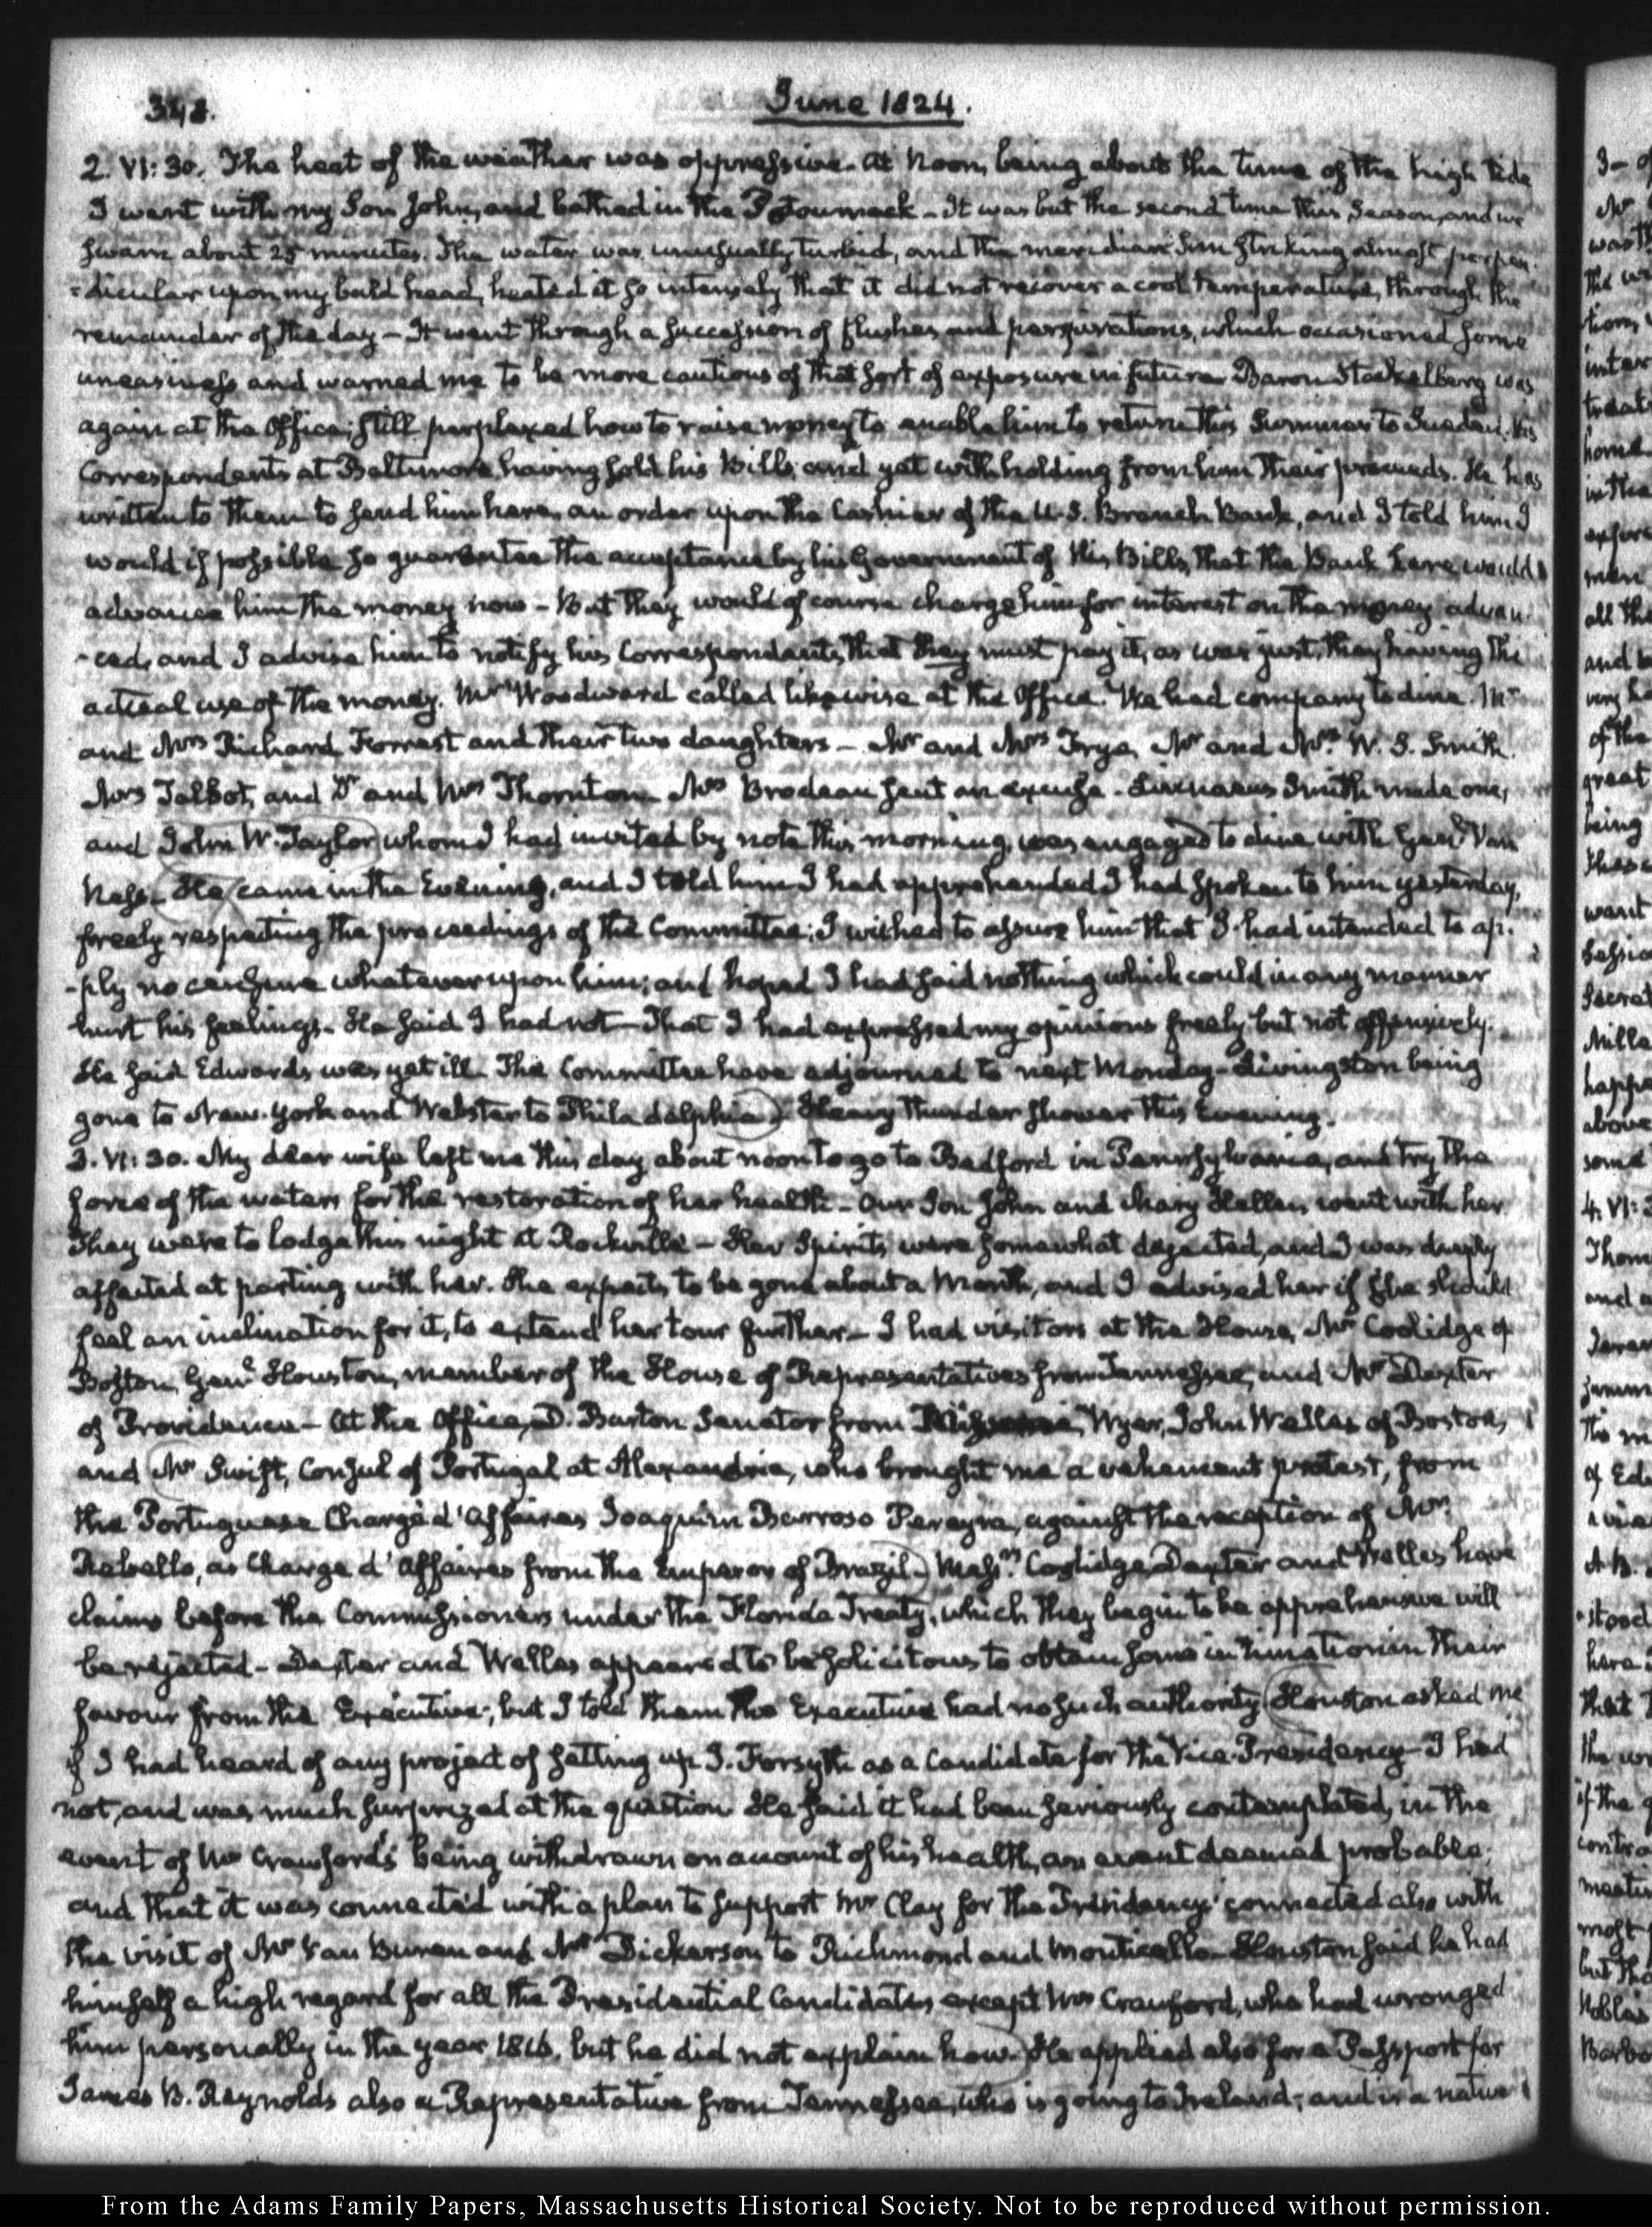 348.
June 1824.
2. VI: 30. The heat of the weather was oppressive. At Noon, being about the time of the high tide
I went with my Son John, and bathed in the Potowmack - It was but the second time this Season, and we
swam about 25 minutes. The water was unusually turbid, and the meridian Sun striking almost perpen-
=dicular upon my bald head, heated it so intensely that it did not recover a cool temperature, through the
remainder of the day - It went through a succession of flushes and perspirations, which occasioned some
uneasiness and warned me to be more cautious of that sort of exposure in future. Baron Stackelberg was
again at the Office; still perplexed how to raise money to enable him to return this Summer to Sweden. His
Correspondents at Baltimore, having sold his Bills, and yet withholding from him their proceeds. He has
written to them to send him here, an order upon the Cashier of the U.S. Branch Bank, and I told him I
would if possible so guarantee the acceptance by his Government of his Bills, that the Bank here would
advance him the money now - But they would of course charge him for interest on the money advan-
-ced, and I advise him to notify his Correspondents, that they must pay it, as was just, they having the
actual use of the money. Mr Woodward called likewise at the Office. We had company to dine. Mr
and Mrs Richard Forrest and their two daughters - Mr and Mrs Frye, Mr and Mrs W. S. Smith.
Mrs Talbot, and Dr and Mrs Thornton. Mrs Brodeau sent an excuse - Linnaeus Smith made one,
and John W. Taylor whom I had invited by note this morning, was engaged to dine with Genl Van
Ness. He came in the Evening, and I told him I had apprehended I had spoken to him yesterday,
freely respecting the proceedings of the Committee; I wished to assure him that I had intended to ap-
-ply no censure whatever upon him; and hoped I had said nothing which could in any manner
hurt his feelings. He said I had not - That I had expressed my opinions freely but not offensively.
He said Edwards was yet ill. The Committee have adjourned to next Monday - Livingston being
gone to New-York and Webster to Philadelphia. Heavy thunder shower this Evening.
3. VI: 30. My dear wife left me this day about noon to go to Bedford in Pennsylvania, and try the
force of the waters for the restoration of her health - Our Son John and Mary Hellen went with her
They were to lodge this night at Rockville - Her Spirits were somewhat dejected, and I was deeply
affected at parting with her. She expects to be gone about a Month, and I advised her if she should
feel an inclination for it, to extend her tour further - I had visitors at the House, Mr Coolidge of
Boston, Genl Houston, member of the House of Representatives from Tennessee, and Mr Dexter
of Providence - At the Office, D. Barton Senator from Missouri, Wyer, John Welles of Boston,
and Mr Swift, Consul of Portugal at Alexandria, who brought me a vehement protest, from
the Portuguese Chargé d'Affaires Joaquim Barroso Pereyra, against the reception of Mr
Rebello, as Chargé d'Affaires from the Emperor of Brazil. Messrs Coolidge, Dexter and Welles have
claims before the Commissioners under the Florida Treaty, which they begin to be apprehensive will
be rejected - Dexter and Welles appeared to be solicitous to obtain some intimation in their
favour from the Executive; but I told them the Executive had no such authority. Houston asked me
if I had heard of any project of setting up J. Forsyth as a Candidate for the Vice-Presidency - I had
not, and was much surprized at the question. He said it had been seriously contemplated, in the
event of Mr Crawford's being withdrawn on account of his health, an event deemed probable;
and that it was connected with a plan to support Mr Clay for the Presidency; connected also with
the visit of Mr Van Buren and Mr Dickerson to Richmond and Monticello - Houston said he had
himself a high regard for all the Presidential Candidates except Mr Crawford, who had wronged
him personally in the year 1816, but he did not explain how. He applied also for a Passport for
James B. Reynolds also a Representative from Tennessee, who is going to Ireland; and is a native
From the Adams Family Papers, Massachusetts Historical Society. Not to be reproduced without permission.